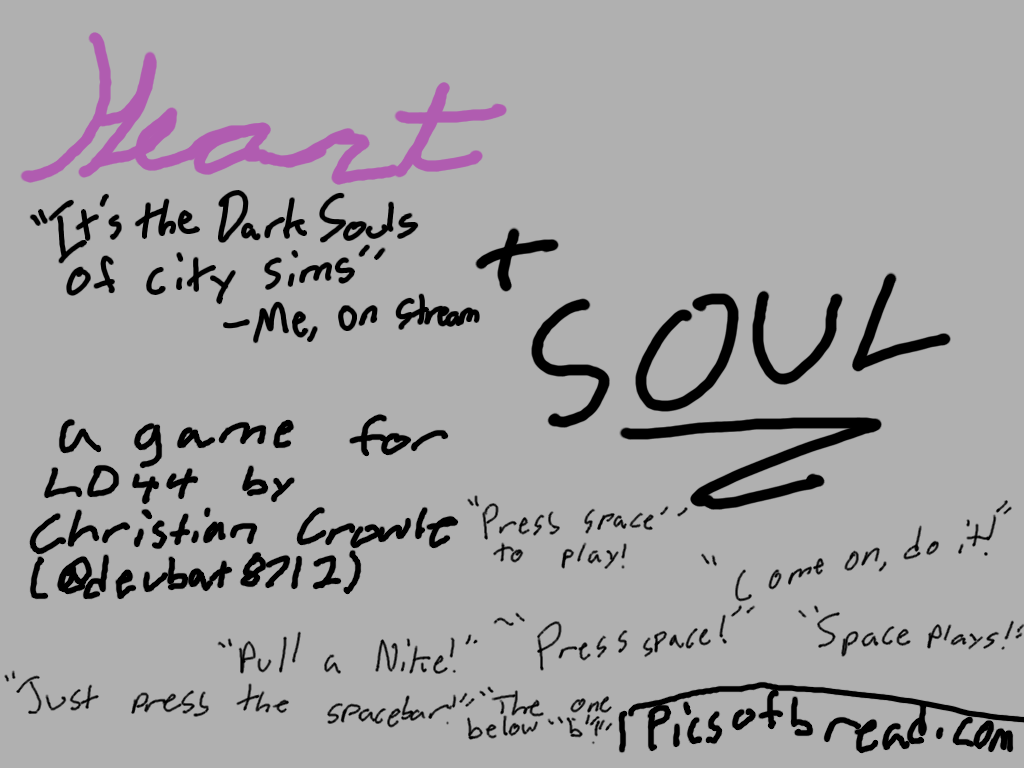 Heart
"It's the Dark Souls
of city sims"
-Me, on stream
+
SOUL
a game for
LD44 by
Christian Crowle
(@devbat8712)
"Press space"
to play!
"Come on, do it!"
"Pull a Nike!"
"Press space!"
"Space plays!"
"Just press the spacebar!"
"The one
below "b"!"
Picsofbread.com